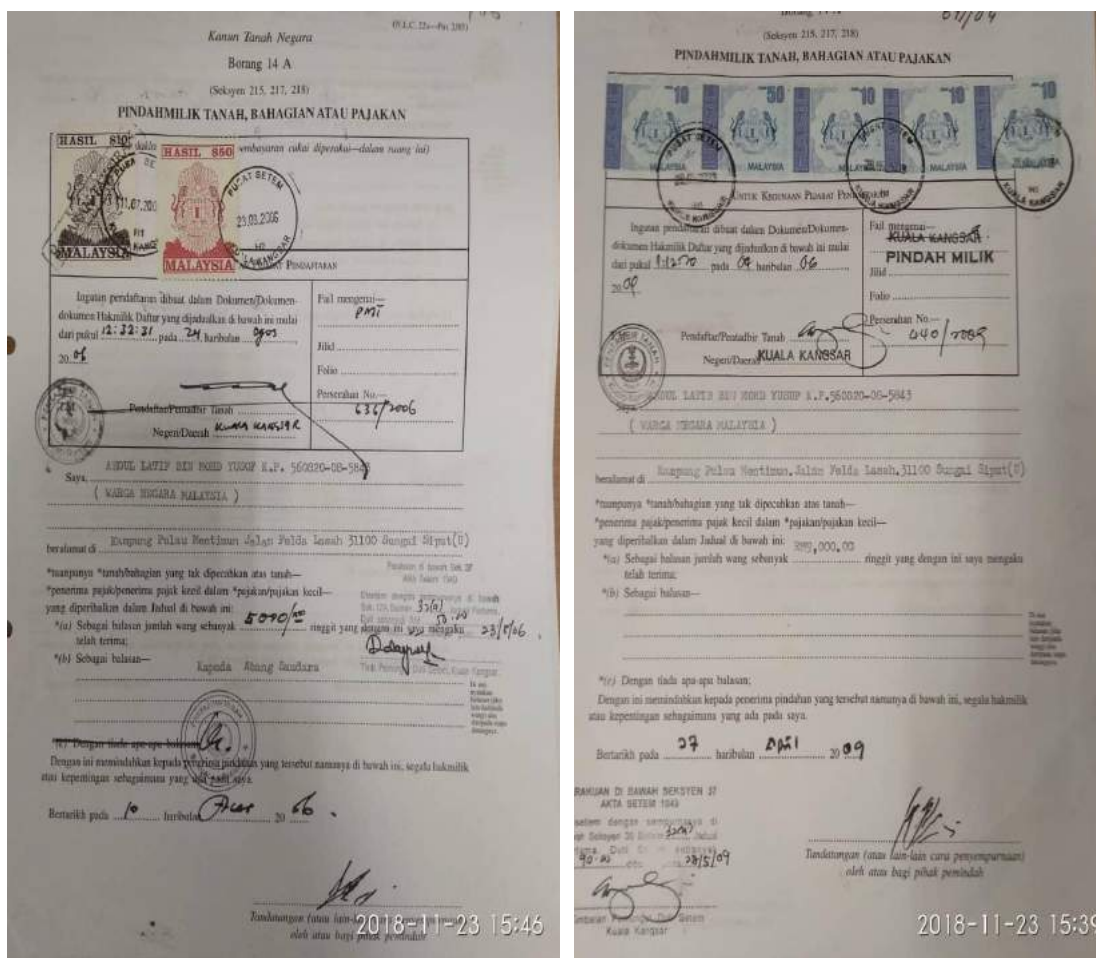 (N.L.C. 22a—Pin. 2/85)
Kanun Tanah Negara
Borang 14 A
(Seksyen 215, 217, 218)
PINDAHMILIK TANAH, BAHAGIAN ATAU PAJAKAN
HASIL $10
HASIL $50
pembayaran cukai diperakui—dalam ruang ini)
PUSAT SETEM
23.08.2006
KUALA KANGSAR
MALAYSIA
MALAYSIA
PENDAFTARAN
Ingatan pendaftaran dibuat dalam Dokumen/Dokumen-
dokumen Hakmilik Daftar yang dijadualkan di bawah ini mulai
dari pukul 12:32:31 pada 24 haribulan Ogos
20 06
Fail mengenai—
PMT
Jilid
Folio
Perserahan No.—
636/2006
Pendaftar/Pentadbir Tanah
Negeri/Daerah KUALA KANGSAR
Saya, ABDUL LATIF BIN MOHD YUSOF K.P. 560820-08-5843
( WARGA NEGARA MALAYSIA )
beralamat di Kampung Pulau Mentimun Jalan Felda Lasah 31100 Sungai Siput(U)
*tuanpunya *tanah/bahagian yang tak dipecahkan atas tanah—
*penerima pajak/penerima pajak kecil dalam *pajakan/pajakan kecil—
yang diperihalkan dalam Jadual di bawah ini:
*(a) Sebagai balasan jumlah wang sebanyak 5000/00 ringgit yang dengan ini saya mengaku
telah terima;
23/8/06
*(b) Sebagai balasan—
Kepada Abang Saudara
*(c) Dengan tiada apa-apa balasan;
Dengan ini memindahkan kepada penerima pindahan yang tersebut namanya di bawah ini, segala hakmilik
atau kepentingan sebagaimana yang ada pada saya.
Bertarikh pada 10 haribulan 20 06
Tandatangan (atau lain-lain cara penyempurnaan)
oleh atau bagi pihak pemindah
2018-11-23 15:46
(Seksyen 215, 217, 218)
PINDAHMILIK TANAH, BAHAGIAN ATAU PAJAKAN
10 50 10 10 10
MALAYSIA
PUSAT SETEM
KUALA KANGSAR
UNTUK KEGUNAAN PEJABAT PENDAFTARAN
Ingatan pendaftaran dibuat dalam Dokumen/Dokumen-
dokumen Hakmilik Daftar yang dijadualkan di bawah ini mulai
pada 04 haribulan 06
20 09
Fail mengenai—
KUALA KANGSAR
PINDAH MILIK
Jilid
Folio
Perserahan No.—
040/2009
Pendaftar/Pentadbir Tanah
Negeri/Daerah KUALA KANGSAR
ABDUL LATIF BIN MOHD YUSOF K.P.560820-08-5843
( WARGA NEGARA MALAYSIA )
beralamat di Kampung Pulau Mentimun,Jalan Felda Lasah,31100 Sungai Siput(U)
*tuanpunya *tanah/bahagian yang tak dipecahkan atas tanah—
*penerima pajak/penerima pajak kecil dalam *pajakan/pajakan kecil—
yang diperihalkan dalam Jadual di bawah ini:
*(a) Sebagai balasan jumlah wang sebanyak ringgit yang dengan ini saya mengaku
telah terima;
*(b) Sebagai balasan—
*(c) Dengan tiada apa-apa balasan;
Dengan ini memindahkan kepada penerima pindahan yang tersebut namanya di bawah ini, segala hakmilik
atau kepentingan sebagaimana yang ada pada saya.
Bertarikh pada 27 haribulan April 2009
RAKUAN DI BAWAH SEKSYEN 37
AKTA SETEM 1949
28/5/09
Kuala Kangsar
Tandatangan (atau lain-lain cara penyempurnaan)
oleh atau bagi pihak pemindah
2018-11-23 15:39